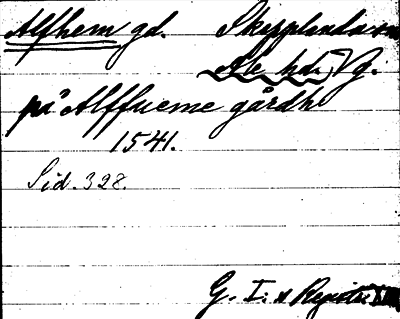 Alfhem gd. Skepplanda sn
Ale hd. Vg.
på Alffueme gårdh
1541.
Sid. 328.
G. I:s Registr.